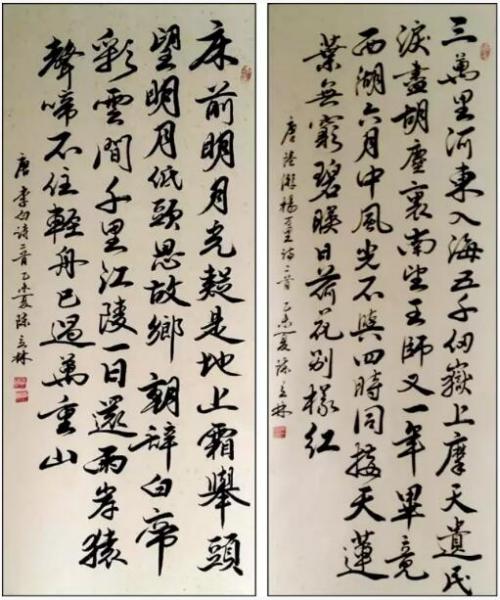 床前明月光疑是地上霜舉頭
望明月低頭思故鄉 朝辭白帝
彩雲間千里江陵一日還兩岸猿
聲啼不住輕舟已過萬重山
唐李白诗二首乙未夏陈立林
三萬里河東入海五千仞嶽上摩天遺民
淚盡胡塵裏南望王師又一年畢竟
西湖六月中風光不與四時同接天蓮
葉無窮碧暎日荷花别樣紅
唐陸游楊万里诗二首 乙未夏陈立林